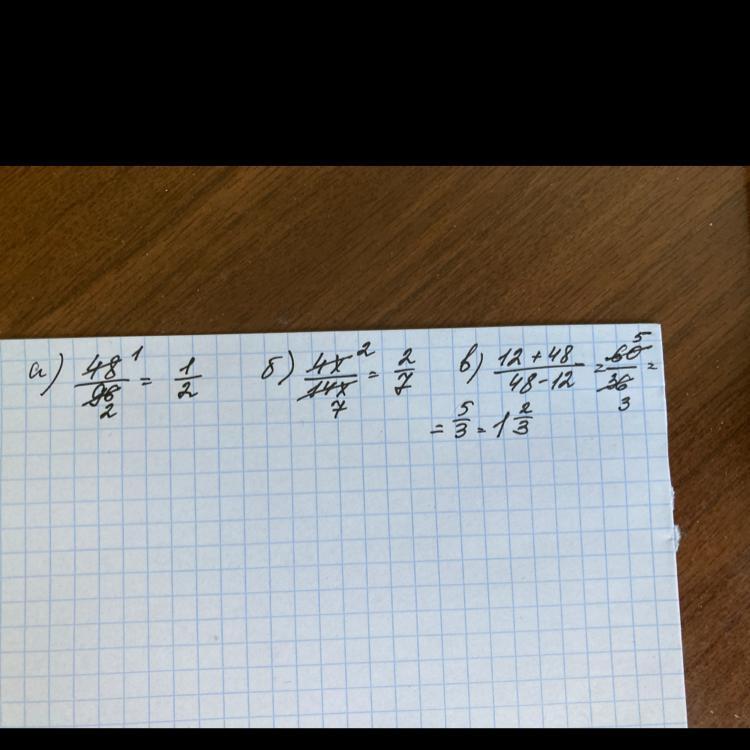 а) 48¹/96₂ = 1/2 б) 4x²/14x₇ = 2/7 в) 12+48/48-12 = 60⁵/36₃ =
= 5/3 = 1 2/3